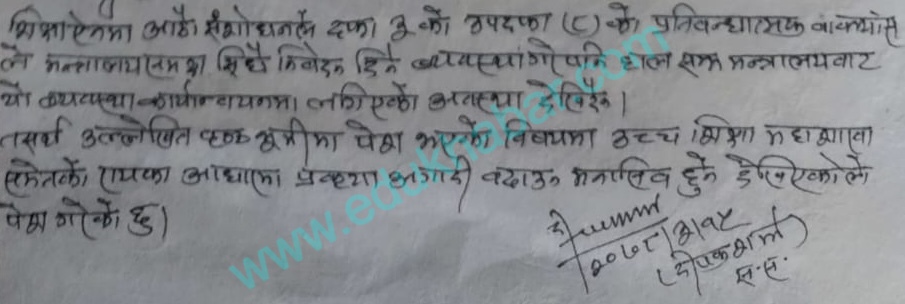 शिक्षा ऐनमा आठौं संशोधनले दफा ३ को उपदफा (८) को प्रतिबन्धात्मक वाक्यांस
ले मन्त्रालयसमक्ष सिधै निवेदन दिने व्यवस्था गरे पनि हाल सम्म मन्त्रालयबाट
यो व्यवस्था कार्यान्वयनमा नलगिएको अवस्था देखिन्छ।
तसर्थ उल्लेखित पेश भएको विषयमा उच्च शिक्षा महाशाखा
समेतको रायका आधारमा प्रक्रिया अगादी बढाउन मनासिव हुने देखिएकोले
पेश गरेको छु।
(दीपक शर्मा)
www.edukhabar.com